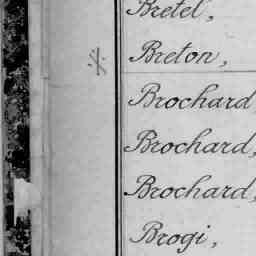 Bretel,
Breton,
Brochard
Brochard,
Brochard,
Brogi,